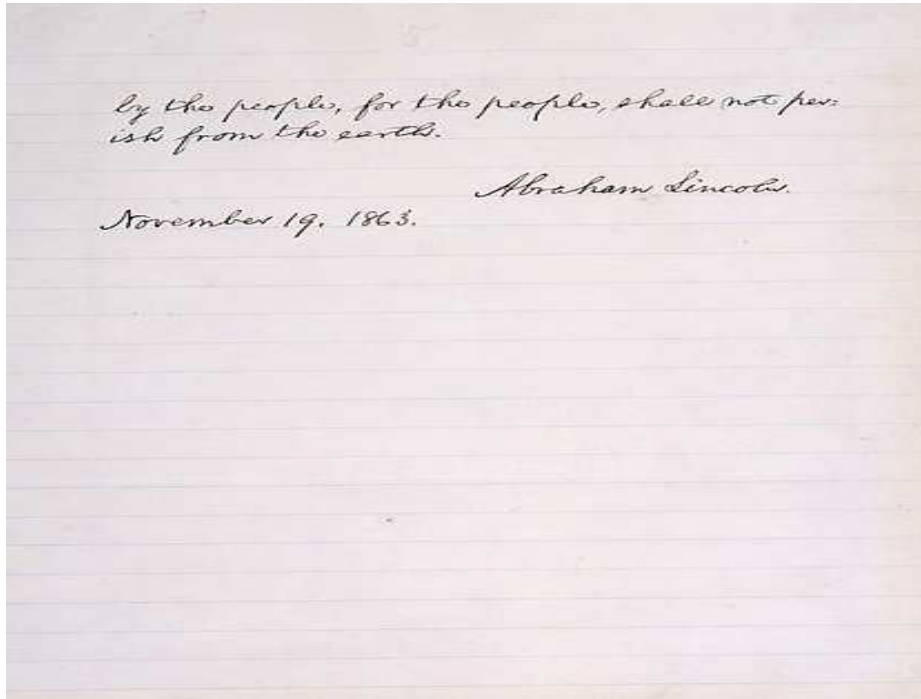 by the people, for the people, shall not per=
ish from the earth.
Abraham Lincoln.
November 19. 1863.